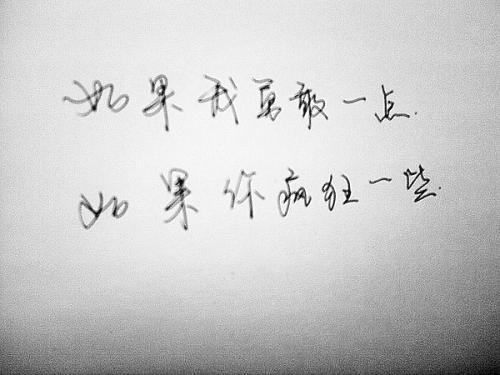 如果我勇敢一点.
如果你疯狂一些.